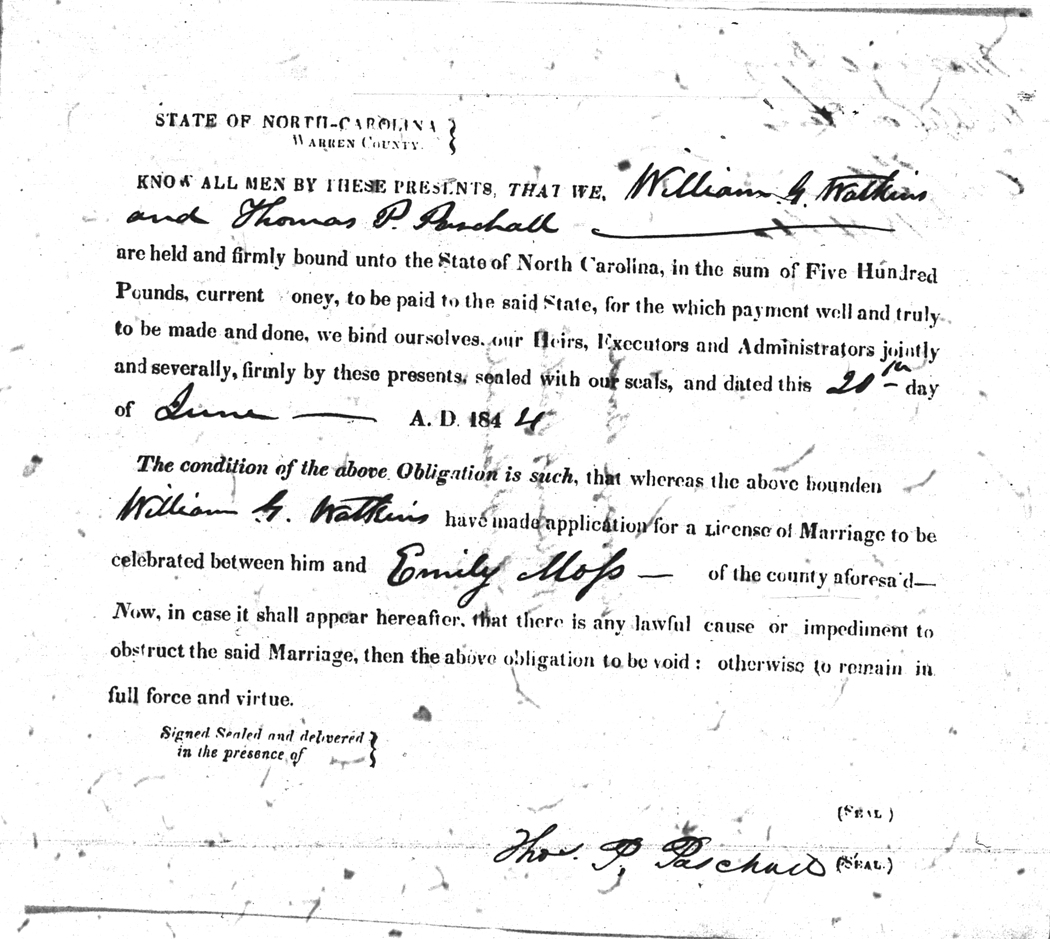 STATE OF NORTH-CAROLINA
WARREN COUNTY.
KNOW ALL MEN BY THESE PRESENTS, THAT WE, William G. Watkins
and Thomas P. Paschall
are held and firmly bound unto the State of North Carolina, in the sum of Five Hundred
Pounds, current oney, to be paid to the said State, for the which payment well and truly
to be made and done, we bind ourselves, our Heirs, Executors and Administrators jointly
and severally, firmly by these presents, sealed with our seals, and dated this 20th day
of June A. D. 1844
The condition of the above Obligation is such, that whereas the above bounden
William G. Watkins have made application for a License of Marriage to be
celebrated between him and Emily Moſs of the county aforesa'd—
Now, in case it shall appear hereafter, that there is any lawful cause or impediment to
obstruct the said Marriage, then the above obligation to be void: otherwise to remain in
full force and virtue.
Signed Sealed and delivered
in the presence of
(SEAL)
Thos. P. Paschall (SEAL.)